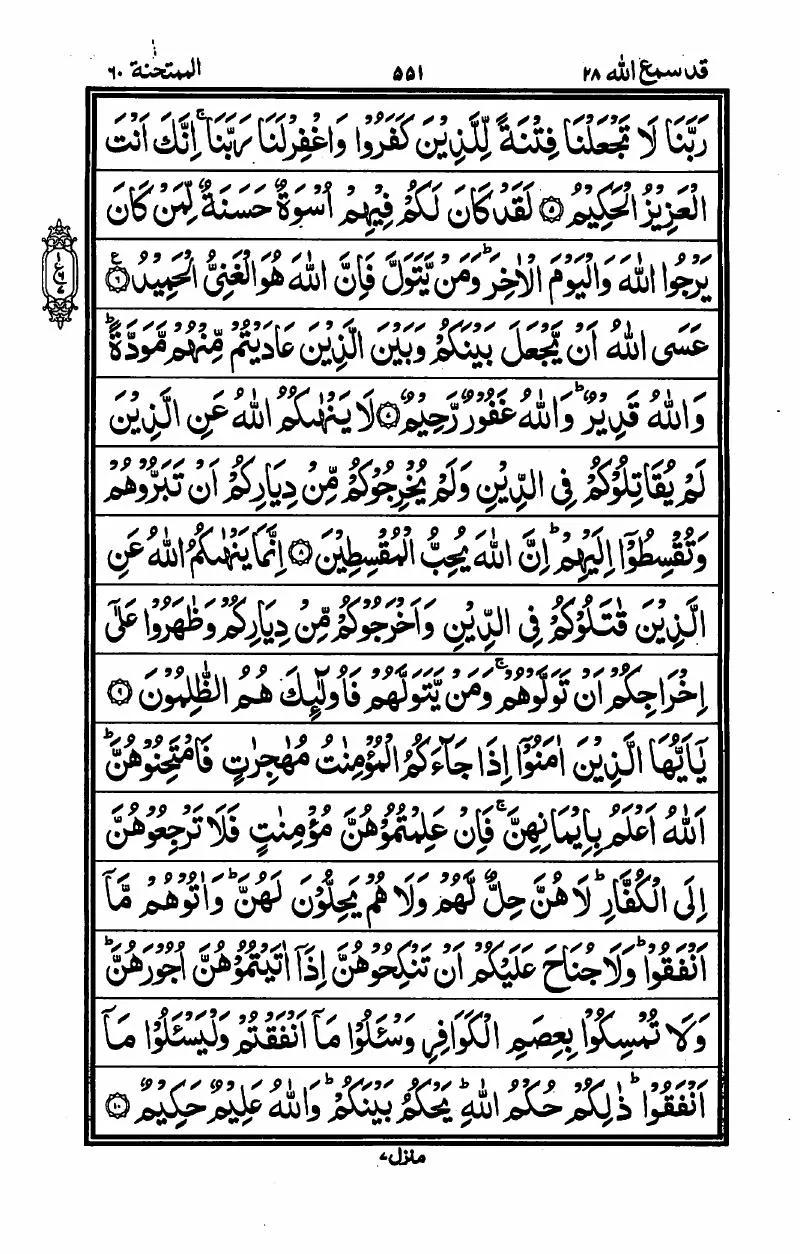 قد سمع الله ٢٨ ٥٥١ الممتحنة ٦٠
رَبَّنَا لَا تَجْعَلْنَا فِتْنَةً لِّلَّذِيْنَ كَفَرُوْا وَاغْفِرْ لَنَا رَبَّنَا ۚ اِنَّكَ اَنْتَ
الْعَزِيْزُ الْحَكِيْمُ ۝٥ لَقَدْ كَانَ لَكُمْ فِيْهِمْ اُسْوَةٌ حَسَنَةٌ لِّمَنْ كَانَ
يَرْجُوا اللّٰهَ وَالْيَوْمَ الْاٰخِرَ ؕ وَمَنْ يَّتَوَلَّ فَاِنَّ اللّٰهَ هُوَ الْغَنِيُّ الْحَمِيْدُ ۝٦ ع
عَسَى اللّٰهُ اَنْ يَّجْعَلَ بَيْنَكُمْ وَبَيْنَ الَّذِيْنَ عَادَيْتُمْ مِّنْهُمْ مَّوَدَّةً ؕ
وَاللّٰهُ قَدِيْرٌ ؕ وَاللّٰهُ غَفُوْرٌ رَّحِيْمٌ ۝٧ لَا يَنْهٰىكُمُ اللّٰهُ عَنِ الَّذِيْنَ
لَمْ يُقَاتِلُوْكُمْ فِي الدِّيْنِ وَلَمْ يُخْرِجُوْكُمْ مِّنْ دِيَارِكُمْ اَنْ تَبَرُّوْهُمْ
وَتُقْسِطُوْۤا اِلَيْهِمْ ؕ اِنَّ اللّٰهَ يُحِبُّ الْمُقْسِطِيْنَ ۝٨ اِنَّمَا يَنْهٰىكُمُ اللّٰهُ عَنِ
الَّذِيْنَ قٰتَلُوْكُمْ فِي الدِّيْنِ وَاَخْرَجُوْكُمْ مِّنْ دِيَارِكُمْ وَظٰهَرُوْا عَلٰۤى
اِخْرَاجِكُمْ اَنْ تَوَلَّوْهُمْ ۚ وَمَنْ يَّتَوَلَّهُمْ فَاُولٰٓئِكَ هُمُ الظّٰلِمُوْنَ ۝٩
يٰۤاَيُّهَا الَّذِيْنَ اٰمَنُوْۤا اِذَا جَآءَكُمُ الْمُؤْمِنٰتُ مُهٰجِرٰتٍ فَامْتَحِنُوْهُنَّ ؕ
اَللّٰهُ اَعْلَمُ بِاِيْمَانِهِنَّ ۚ فَاِنْ عَلِمْتُمُوْهُنَّ مُؤْمِنٰتٍ فَلَا تَرْجِعُوْهُنَّ
اِلَى الْكُفَّارِ ؕ لَا هُنَّ حِلٌّ لَّهُمْ وَلَا هُمْ يَحِلُّوْنَ لَهُنَّ ؕ وَاٰتُوْهُمْ مَّاۤ
اَنْفَقُوْا ؕ وَلَا جُنَاحَ عَلَيْكُمْ اَنْ تَنْكِحُوْهُنَّ اِذَاۤ اٰتَيْتُمُوْهُنَّ اُجُوْرَهُنَّ ؕ
وَلَا تُمْسِكُوْا بِعِصَمِ الْكَوَافِرِ وَسْـَٔلُوْا مَاۤ اَنْفَقْتُمْ وَلْيَسْـَٔلُوْا مَاۤ
اَنْفَقُوْا ؕ ذٰلِكُمْ حُكْمُ اللّٰهِ ؕ يَحْكُمُ بَيْنَكُمْ ؕ وَاللّٰهُ عَلِيْمٌ حَكِيْمٌ ۝١٠
منزل ٧